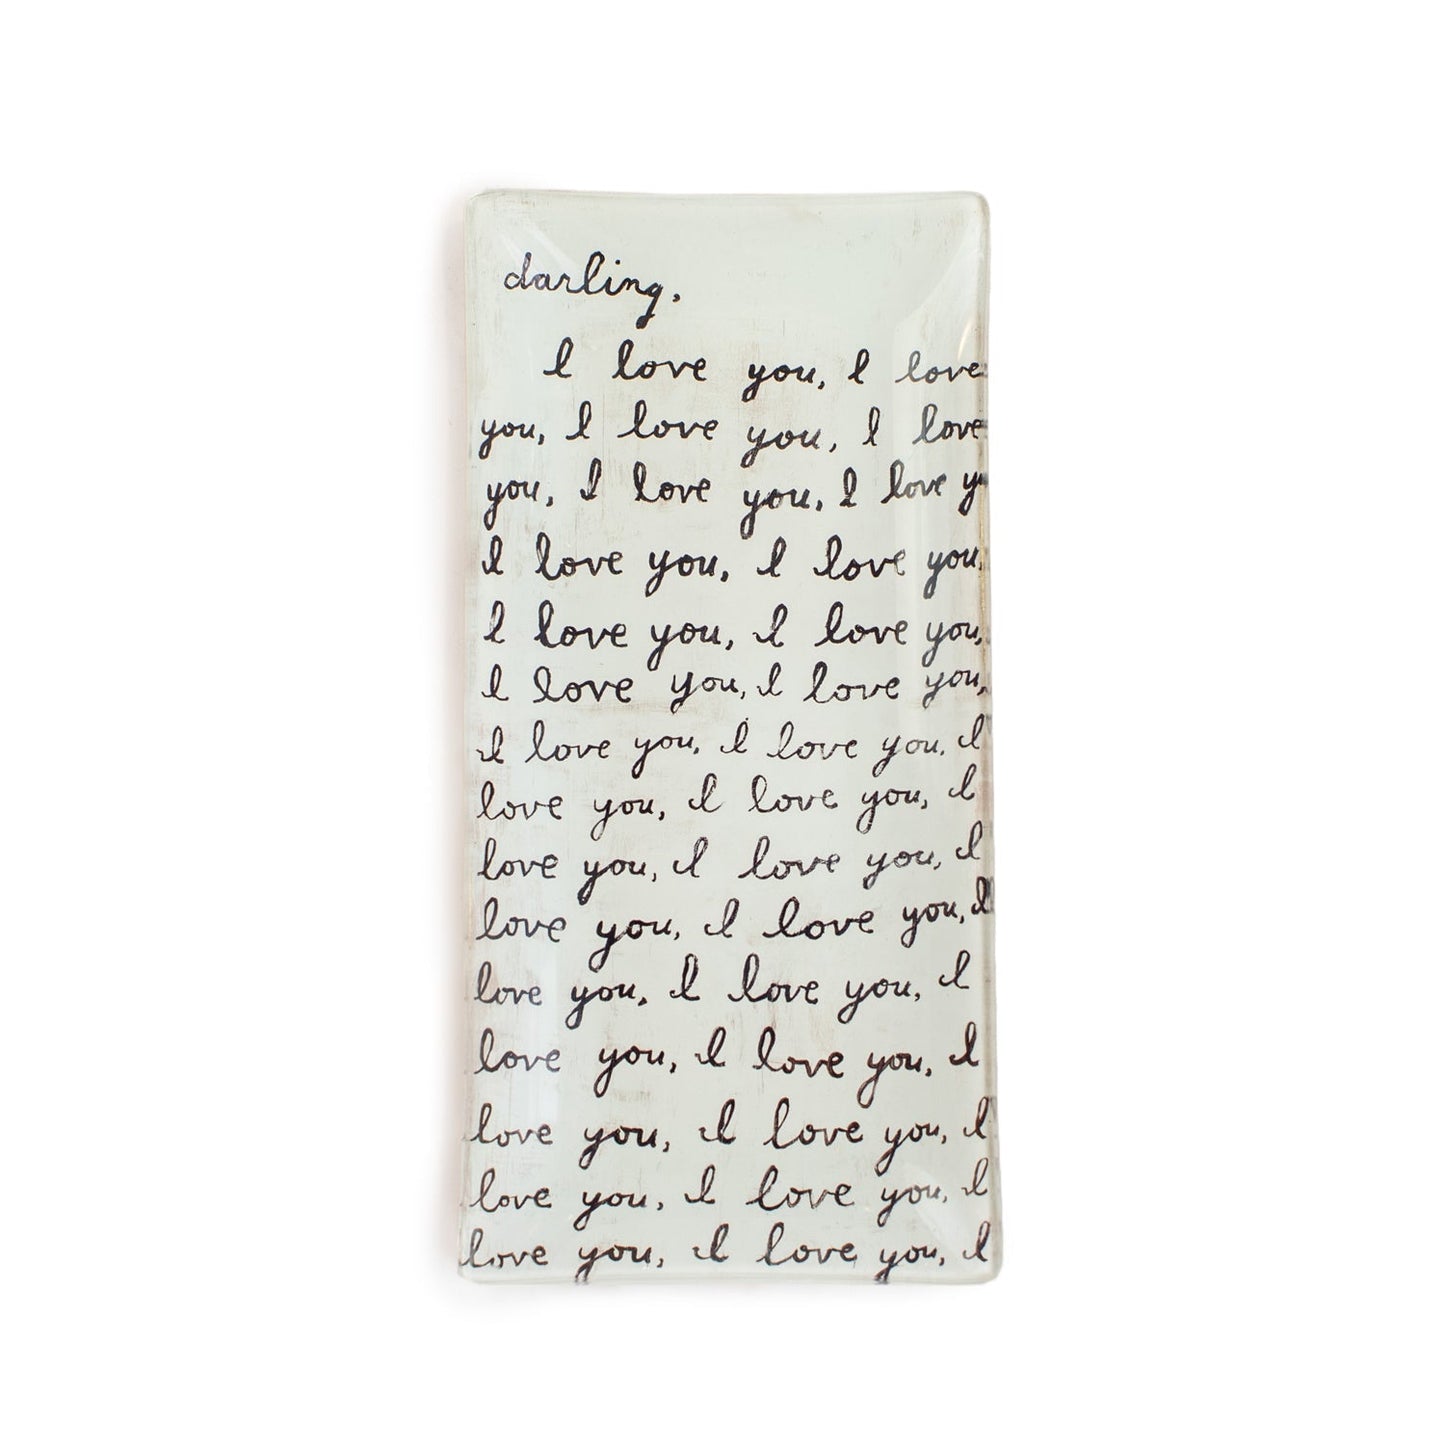 darling,
I love you, I love
you, I love you, I love
you, I love you, I love
I love you, I love you,
I love you, I love you,
I love you, I love you,
I love you, I love you, I
love you, I love you, I
love you, I love you, I
love you, I love you, I
love you, I love you, I
love you, I love you, I
love you, I love you, I
love you, I love you, I
love you, I love you, I